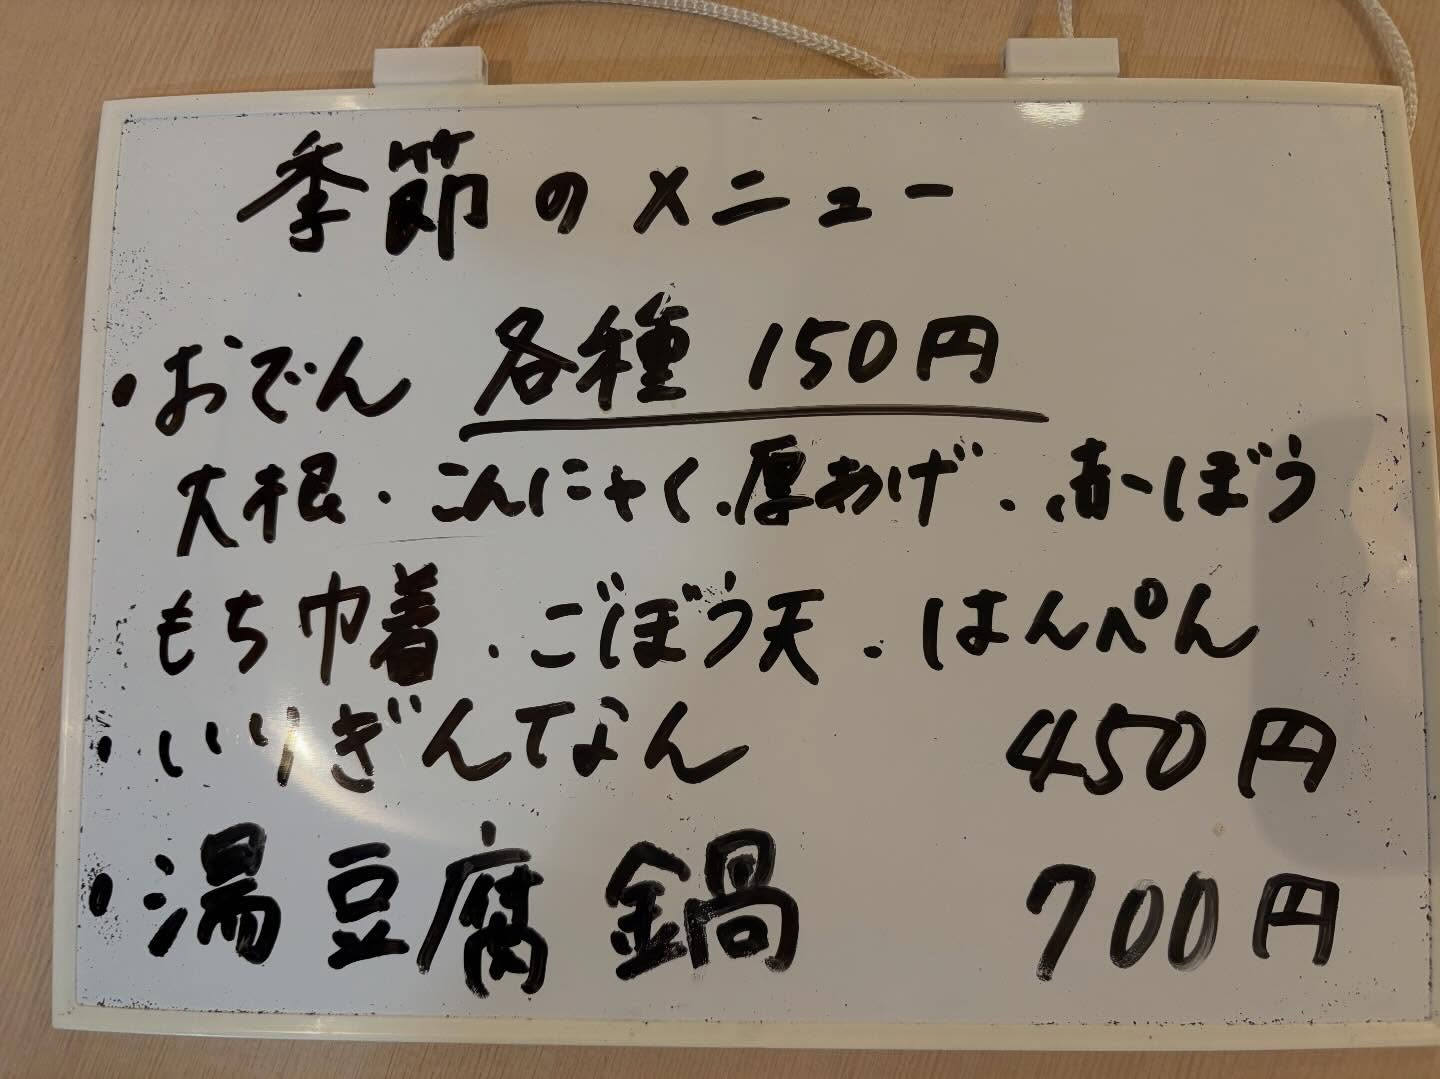 季節のメニュー
・おでん 各種 150円
大根・こんにゃく・厚あげ・赤ーぼう
もち巾着・ごぼう天・はんぺん
・いりぎんなん 450円
・湯豆腐鍋 700円